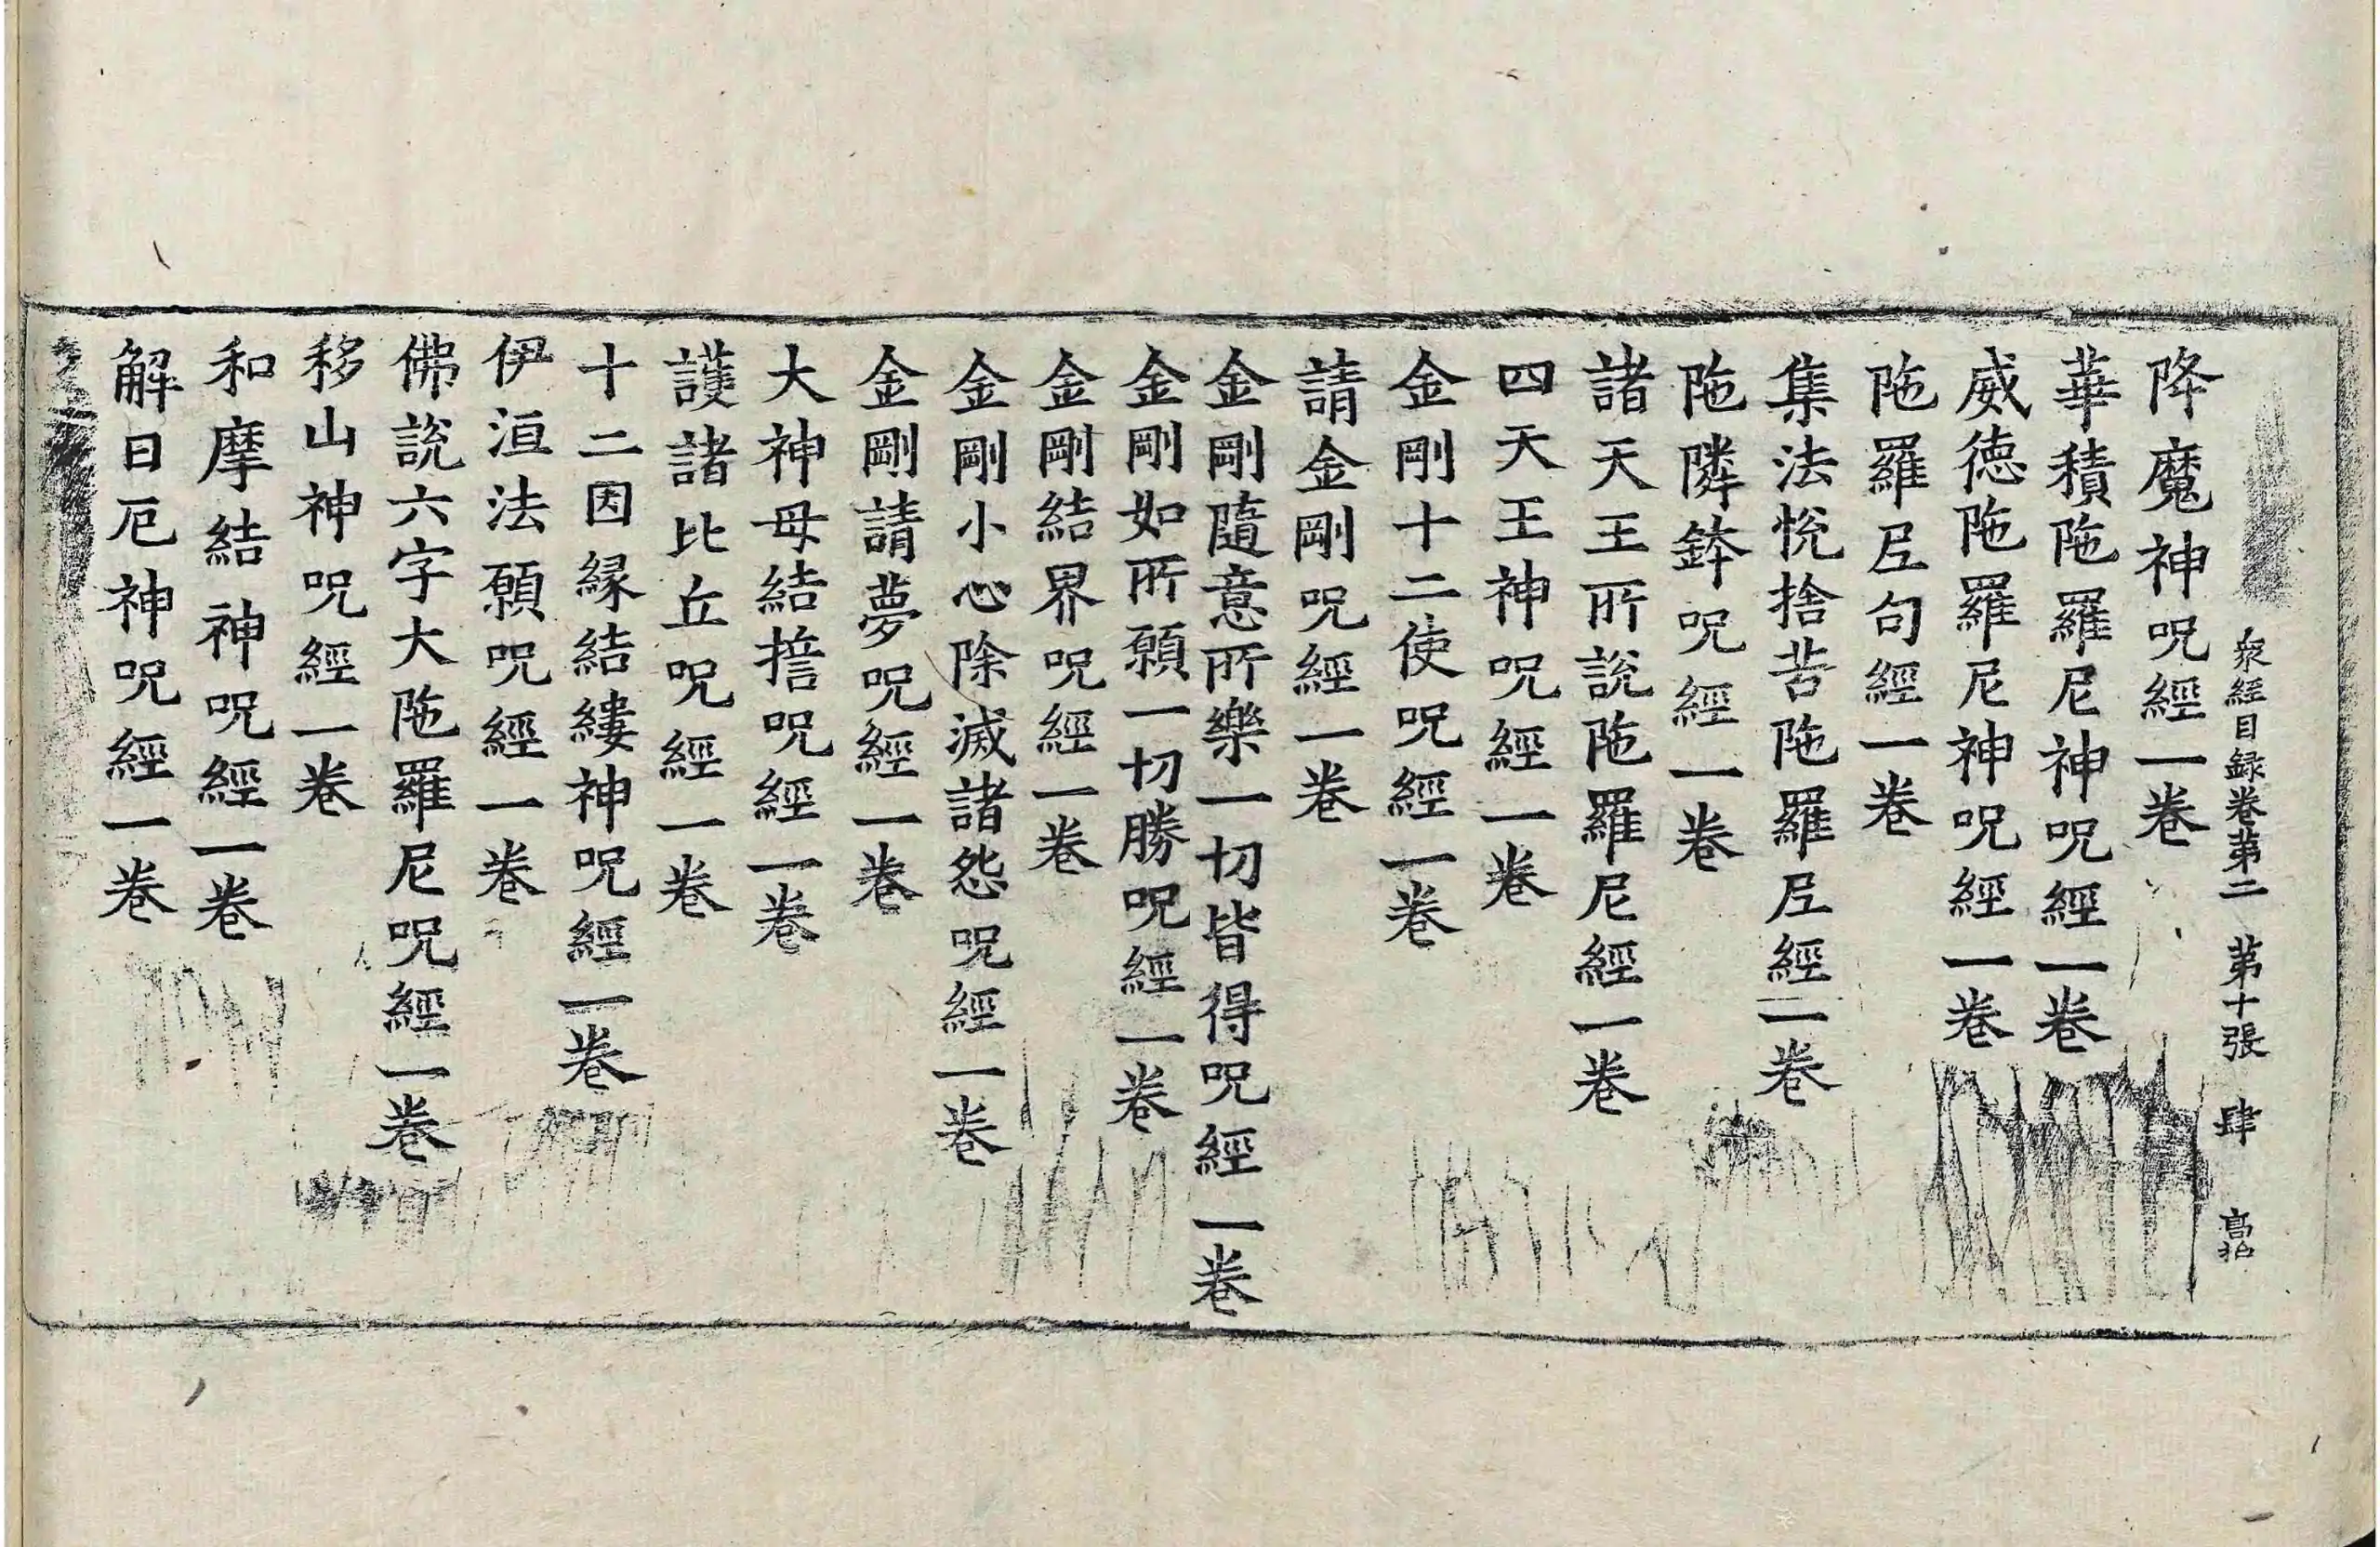 衆經目録卷第二 第十張 肆
降魔神呪經一卷
華積陁羅尼神呪經一卷
威徳陁羅尼神呪經一卷
陁羅𡰱句經一卷
集法恱捨苦陁羅𡰱經一卷
陁隣鉢呪經一卷
諸天王所說陁羅尼經一卷
四天王神呪經一卷
金剛十二使呪經一卷
請金剛呪經一卷
金剛隨意所樂一切皆得呪經一卷
金剛如所願一切勝呪經一卷
金剛結界呪經一卷
金剛小心除滅諸怨呪經一卷
金剛請夢呪經一卷
大神母結誓呪經一卷
護諸比丘呪經一卷
十二因縁結縷神呪經一卷
伊洹法願呪經一卷
佛說六字大陁羅尼呪經一卷
移山神呪經一卷
和摩結神呪經一卷
解日厄神呪經一卷